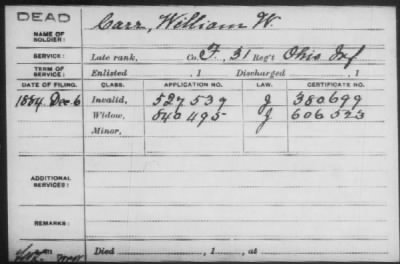 DEAD
NAME OF SOLDIER: Carr, William W.
SERVICE: Late rank, Co. F, 31 Reg't Ohio Inf
TERM OF SERVICE: Enlisted , 1 Discharged , 1
DATE OF FILING. CLASS. APPLICATION NO. LAW. CERTIFICATE NO.
1884 Dec. 6 Invalid, 527539 J 380699
Widow, 840495 J 606523
Minor,
ADDITIONAL SERVICES:
REMARKS:
Died , 1 , at